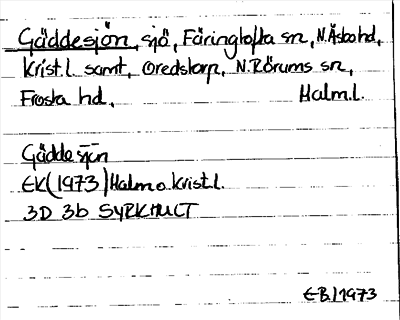 Gäddesjön, sjö, Färingtofta sn, N. Åsbo hd,
Krist.l. samt, Oredstorp, N. Rörums sn,
Frosta hd, Malm.l.
Gäddesjön
EK(1973) Malm o. Krist.l.
3D 3b SYRKHULT
E.B./1973